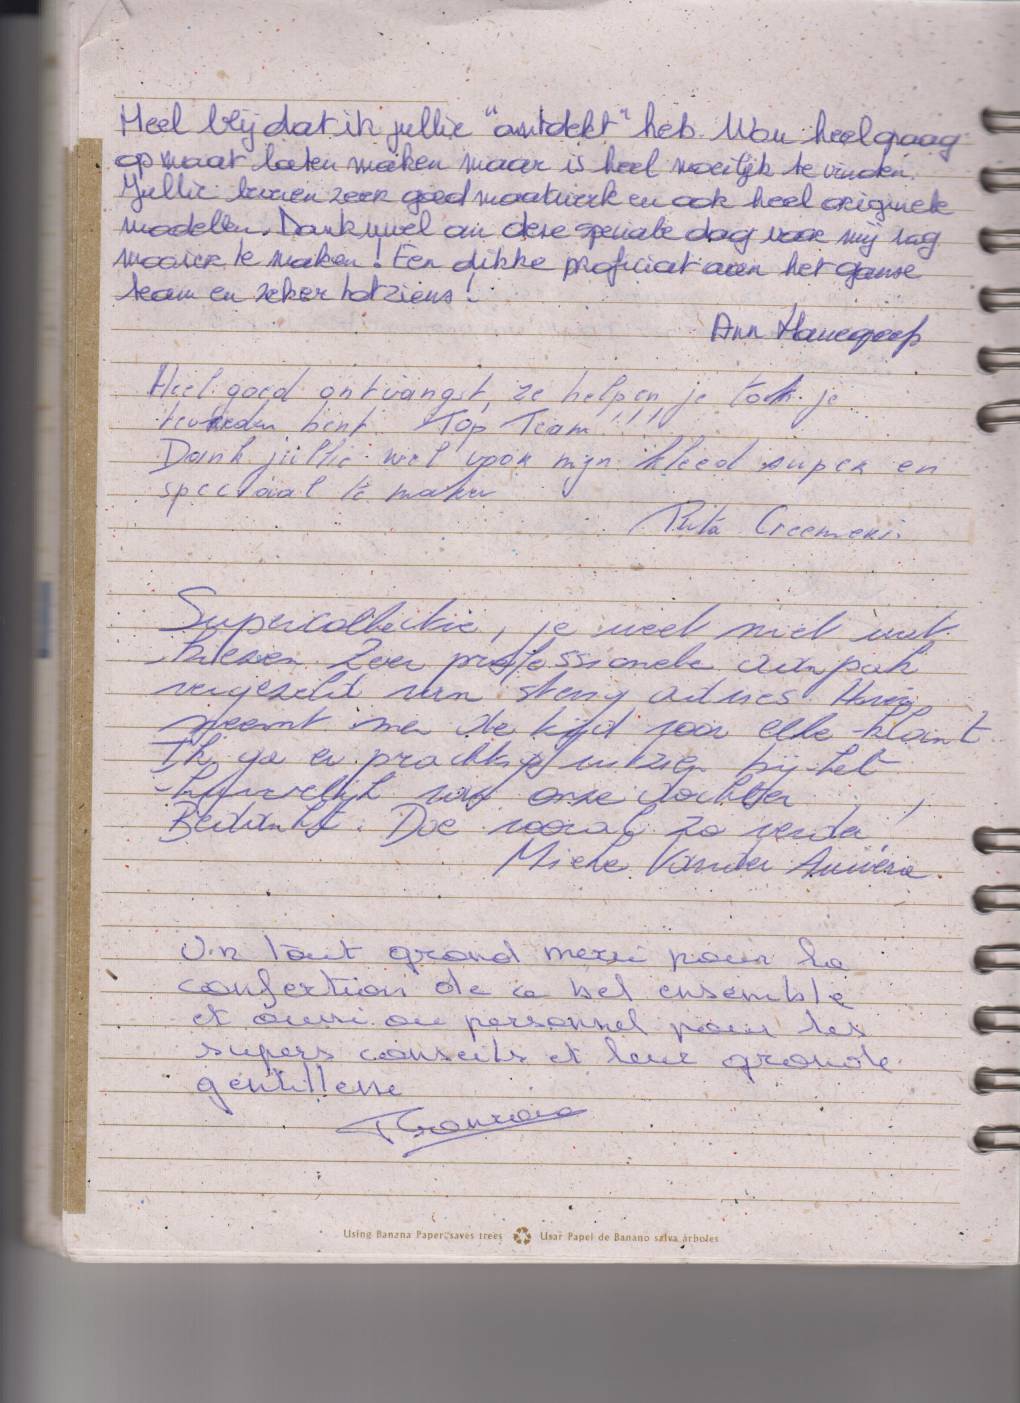 Heel blij dat ik jullie "ontdekt" heb. Wou heel graag
op maat laten maken maar is heel moeilijk te vinden.
Jullie leveren zeer goed maatwerk en ook heel originele
modellen. Dank u wel om deze speciale dag voor mij nog
mooier te maken! Een dikke proficiat aan het ganse
team en zeker tot ziens!
Ann
Heel goed ontvangst, ze helpen je tot je
tevreden bent. Top Team !!!
Dank jullie wel voor mijn kleed super en
speciaal te maken
Creemers
Supercollectie, je weet niet wat
kiezen. Zeer professionele aanpak
vergezeld van stevig advies. Hier
neemt men de tijd voor elke klant
Ik ga er prachtig uitzien bij het
huwelijk van onze dochter
Bedankt. Doe vooral zo verder!
Mieke Vander
Un tout grand merci pour la
confection de ce bel ensemble
et aussi au personnel pour les
supers conseils et leur grande
gentillesse
Using Banana Paper saves trees Usar Papel de Banano salva árboles